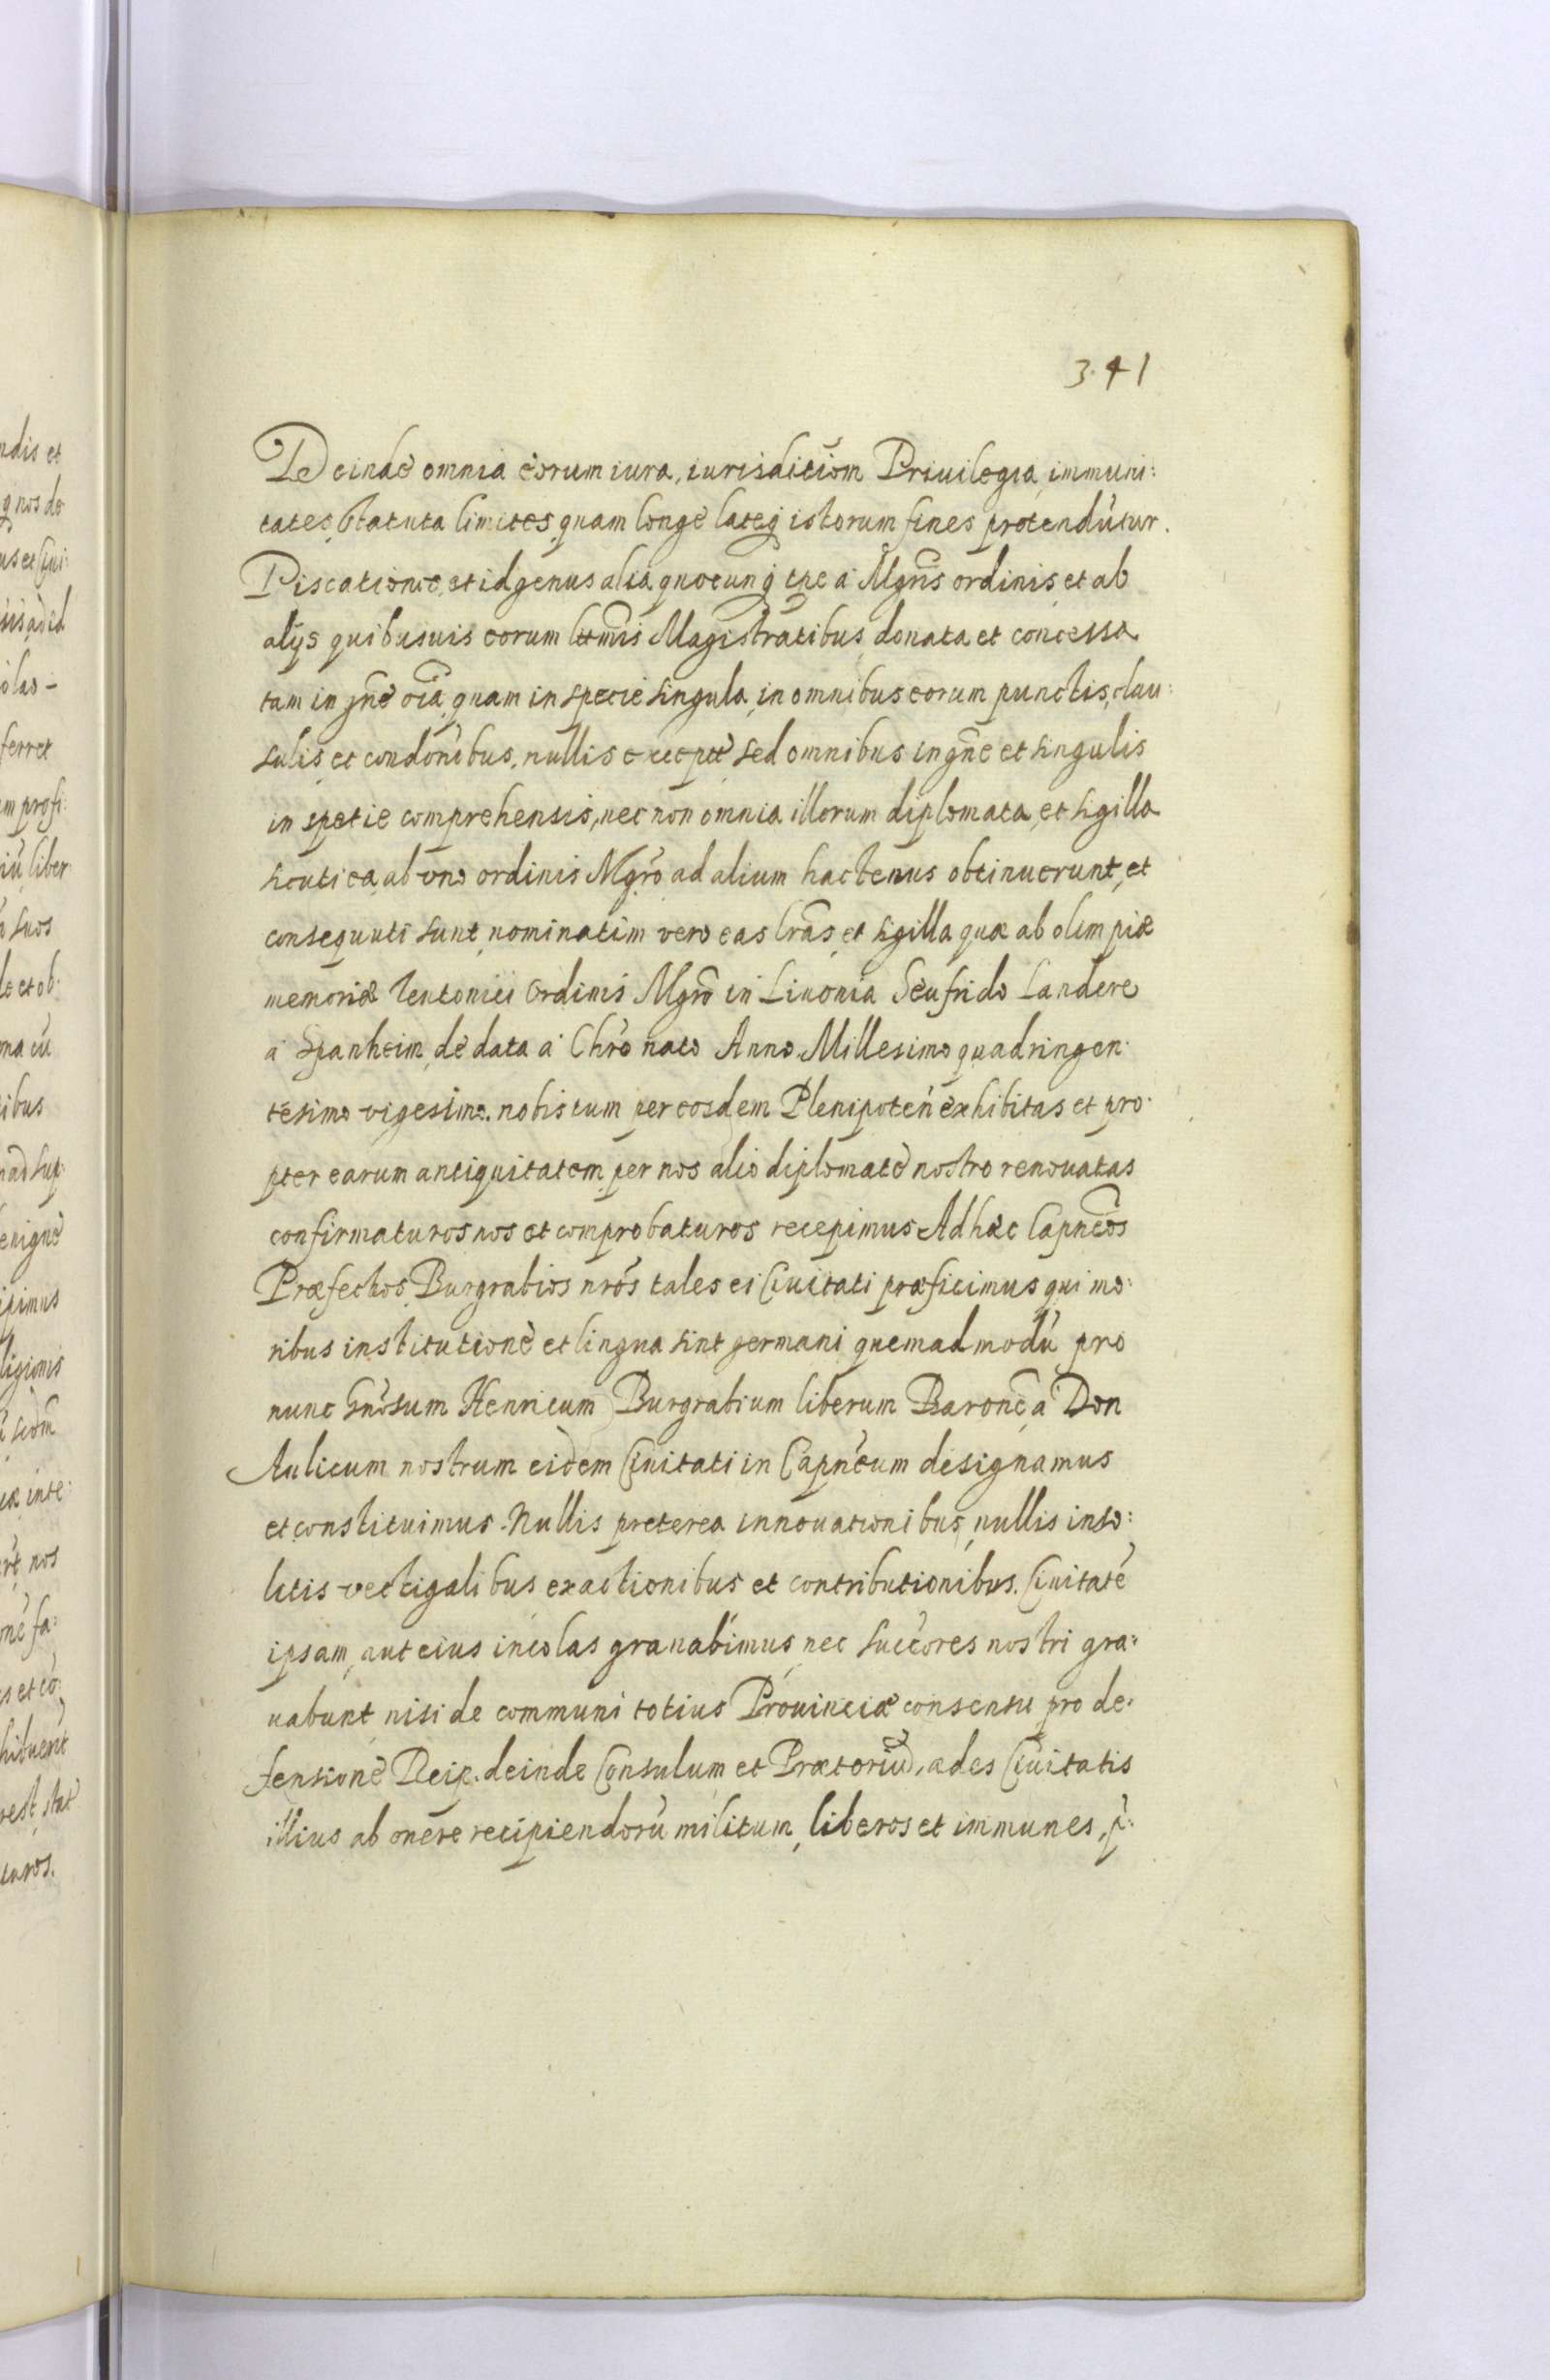 341
Deindè omnia eorum iura, iurisdictiom̃ Priuilegia, immuni:
tates, statuta limites, quam longè lateq̃ istorum fines protendũtur.
Piscationẽ, et id genus alia quocunq̃ tp̃e à Mgr̃is ordinis, et ab
alijs quibusuis eorum ltm̃is Magistratibus, donata et concessa
tam in gñe oĩa, quam in specie singula, in omnibus eorum punctis, clau:
sulis, et condõnibus, nullis except̃ sed omnibus in gñe et singulis
in spetie comprehensis, nec non omnia illorum diplomata, et sigilla
sicuti ea, ab vno ordinis Mgr̃o ad alium hactenus obtinuerunt, et
consequuti sunt, nominatim vero eas lrãs, et sigilla quæ ab olim piæ
memoriæ Teutonici Ordinis Mgr̃o in Liuonia Seufrido Landere
à Spanheim, de data à Chrõ nato Anno Millesimo quadringen:
tesimo vigesimo. nobiscum per eosdem Plenipoteñ exhibitas et pro:
pter earum antiquitatem per nos alio diplomatè nostro renouatas
confirmaturos nos et comprobaturos recepimus Ad hæc Capnẽos
Præfectos, Burgrabios nrõs tales ei Ciuitati præficimus qui mo:
ribus institutionè et lingua sint germani quemadmodũ pro
nunc Gñosum Henricum Burgrabium liberum Baronẽ à Don
Aulicum nostrum eidem Ciuitati in Capnẽum designamus
et constituimus. Nullis preterea innouationibus, nullis inso:
litis vectigalibus exactionibus et contributionibus. Ciuitatẽ
ipsam, aut eius incolas grauabimus, nec succõres nostri gra:
uabunt nisi de communi totius Prouinciæ consensu pro de:
fensionè Reip: deinde Consulum et Prætoriũ, ædes Ciuitatis
illius ab onere recipiendorũ militum, liberos et immunes, p̃: